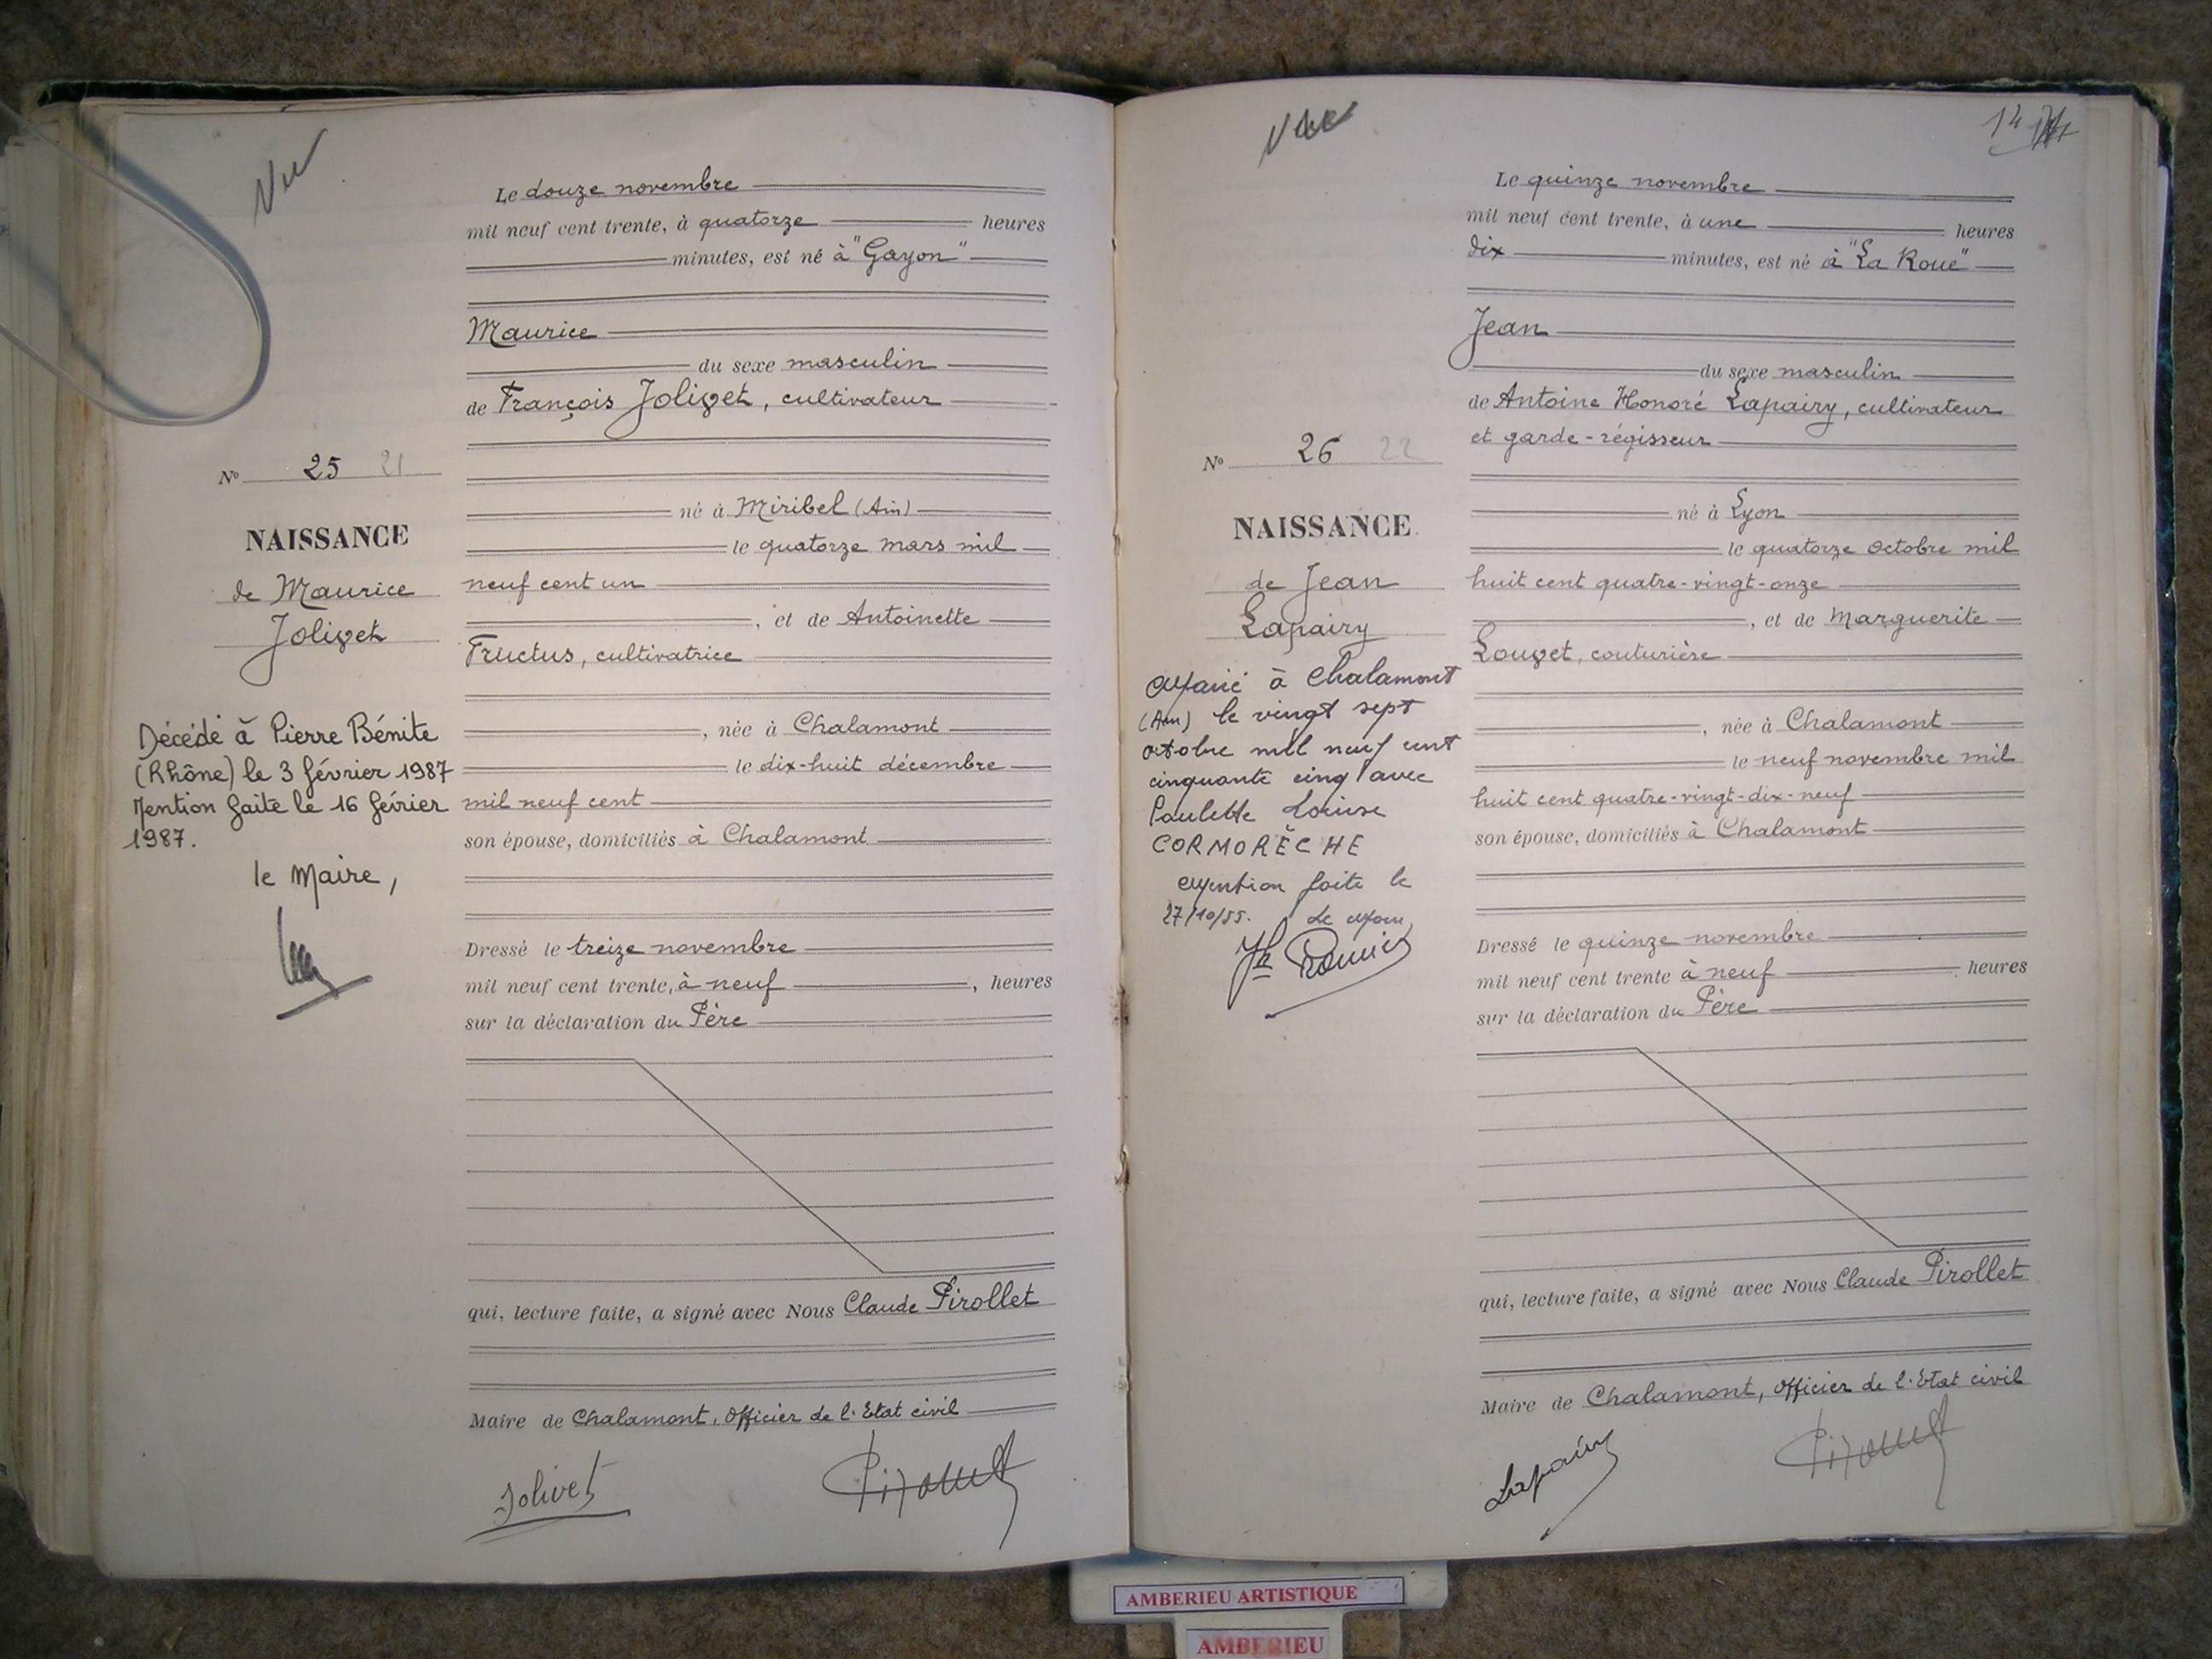 Vu
Le douze novembre
mil neuf cent trente, à quatorze heures
minutes, est né à "Gayon"
Maurice
du sexe masculin
de François Jolivet, cultivateur
né à Miribel (Ain)
le quatorze mars mil
neuf cent un
, et de Antoinette
Fructus, cultivatrice
, née à Chalamont
le dix-huit décembre
mil neuf cent
son épouse, domiciliés à Chalamont
Dressé le treize novembre
mil neuf cent trente, à neuf , heures
sur la déclaration du Père
qui, lecture faite, a signé avec Nous Claude Pirollet
Maire de Chalamont, Officier de l'Etat civil
Jolivet
N° 25 21
NAISSANCE
de Maurice
Jolivet
Décédé à Pierre Bénite
(Rhône) le 3 février 1987
Mention faite le 16 février
1987.
le Maire,
Vu
14
Le quinze novembre
mil neuf cent trente, à une heures
dix minutes, est né à "La Roue"
Jean
du sexe masculin
de Antoine Honoré Lapairy, cultivateur
et garde-régisseur
né à Lyon
le quatorze octobre mil
huit cent quatre-vingt-onze
, et de Marguerite
Louvet, couturière
, née à Chalamont
le neuf novembre mil
huit cent quatre-vingt-dix-neuf
son épouse, domiciliés à Chalamont
Dressé le quinze novembre
mil neuf cent trente à neuf heures
sur la déclaration du Père
qui, lecture faite, a signé avec Nous Claude Pirollet
Maire de Chalamont, Officier de l'Etat civil
Lapairy
N° 26 22
NAISSANCE
de Jean
Lapairy
Marié à Chalamont
(Ain) le vingt sept
octobre mil neuf cent
cinquante cinq avec
Paulette Louise
CORMORÈCHE
Mention faite le
27/10/55. Le Maire,
AMBERIEU ARTISTIQUE
AMBERIEU